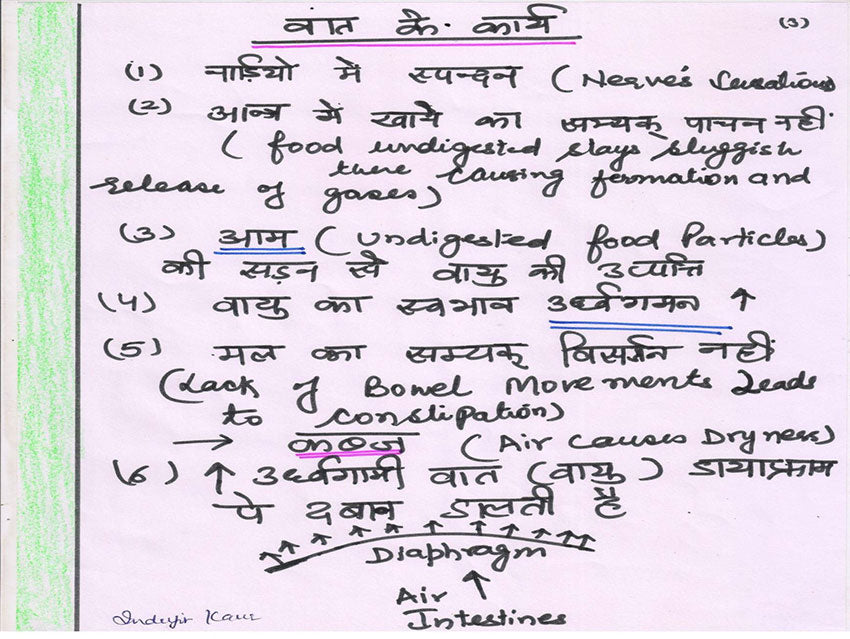 वात के कार्य (3)
(1) नाड़ियो में स्पन्दन (Nerves Sensations
(2) आन्त्र में खाये का सम्यक् पाचन नहीं
(food undigested stays sluggish
there causing formation and
release of gases)
(3) आम (undigested food Particles)
की सड़न से वायु की उत्पत्ति
(4) वायु का स्वभाव उर्ध्वगमन ↑
(5) मल का सम्यक् विसर्जन नहीं
(Lack of Bowel Movements Leads
to constipation)
→ कब्ज (Air causes Dryness)
(6) ↑ उर्ध्वगामी वात (वायु) डायाफ्राम
पे दबाव डालती है
Diaphragm
Air ↑
Intestines
Kaur